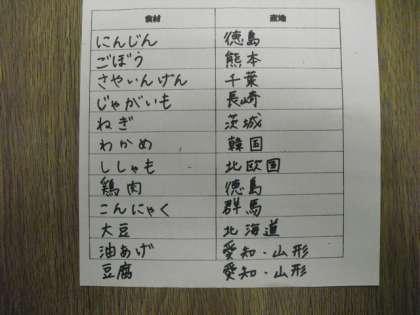 食材 産地
にんじん 徳島
ごぼう 熊本
さやいんげん 千葉
じゃがいも 長崎
ねぎ 茨城
わかめ 韓国
ししゃも 北欧国
鶏肉 徳島
こんにゃく 群馬
大豆 北海道
油あげ 愛知・山形
豆腐 愛知・山形